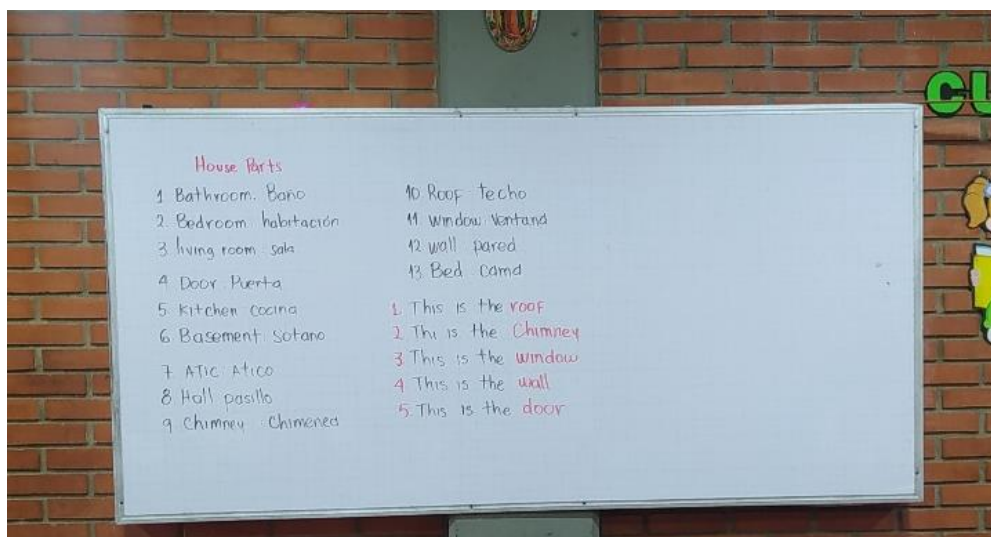 House Parts
1 Bathroom. Baño
2. Bedroom habitación
3. living room sala
4 Door Puerta
5. Kitchen cocina
6. Basement sotano
7 ATIC Atico
8. Hall pasillo
9 Chimney Chimenea
10. Roof techo
11. window ventana
12 wall pared
13. Bed. cama
1. This is the roof
2 Thi is the Chimney
3. This is the window
4 This is the wall
5. This is the door
CU